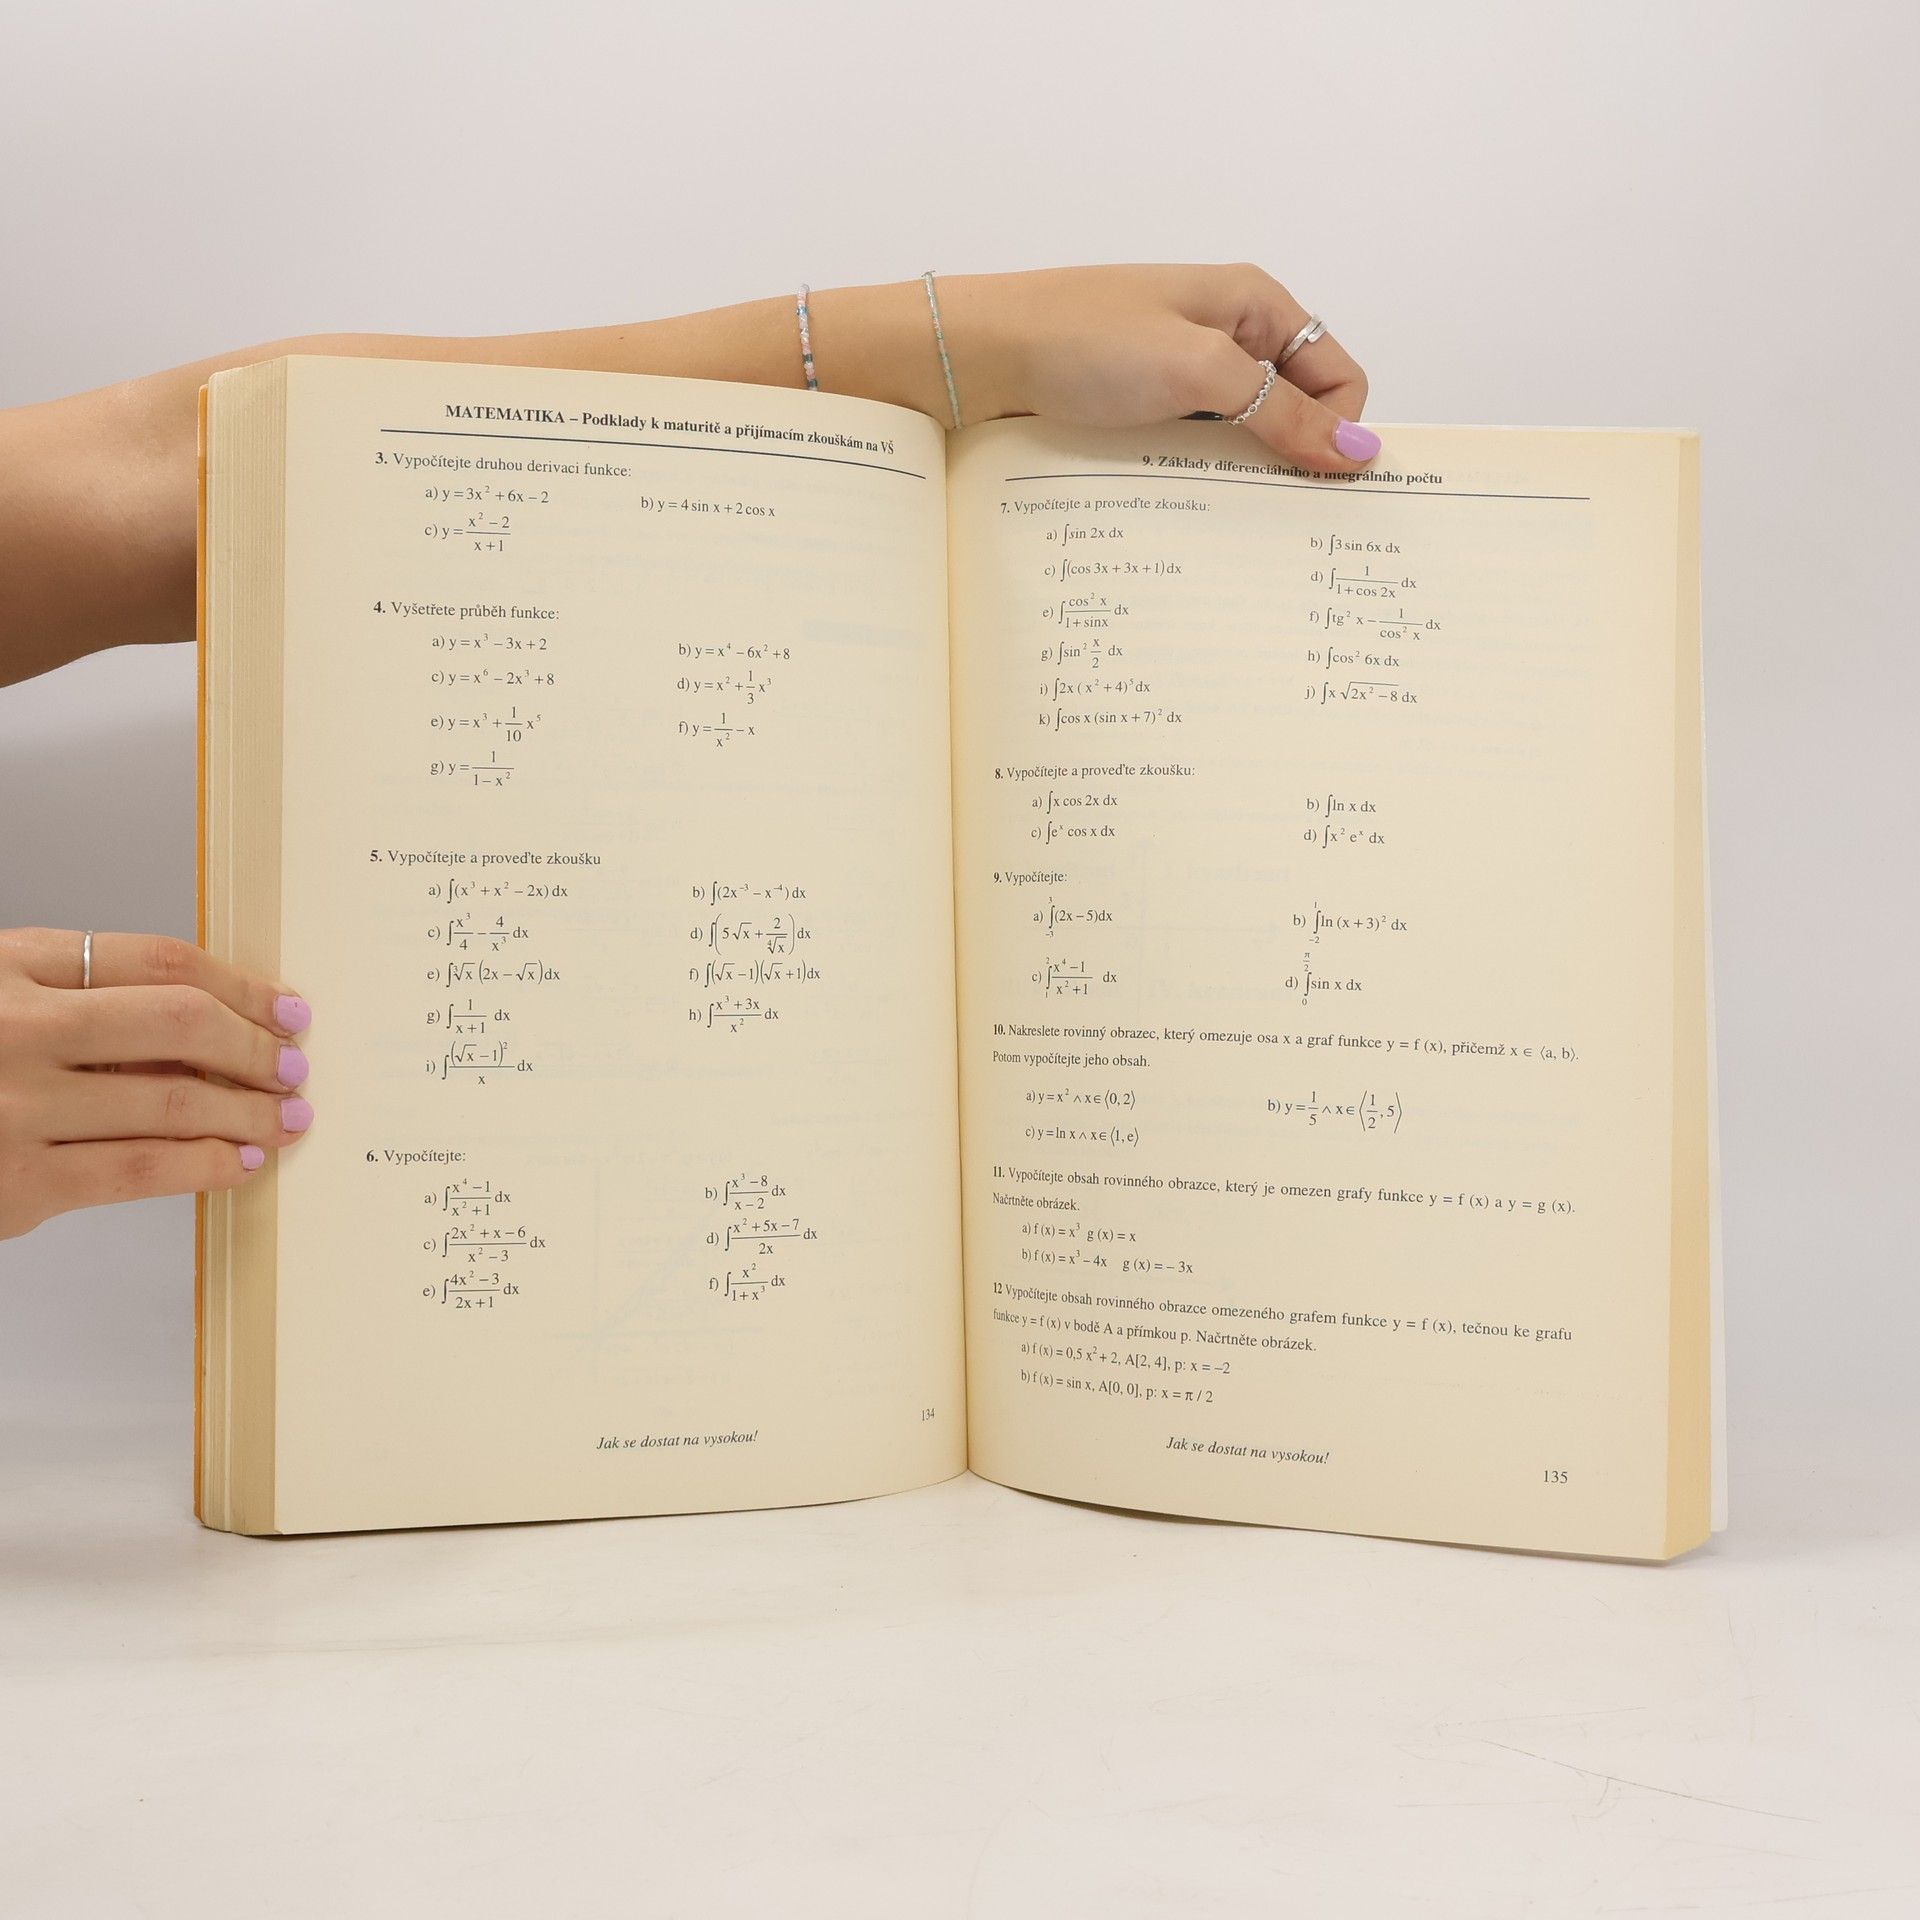 MATEMATIKA – Podklady k maturitě a přijímacím zkouškám na VŠ
3. Vypočítejte druhou derivaci funkce:
a) y = 3x² + 6x – 2
b) y = 4 sin x + 2 cos x
c) y = (x² – 2)/(x + 1)
4. Vyšetřete průběh funkce:
a) y = x³ – 3x + 2
b) y = x⁴ – 6x² + 8
c) y = x⁶ – 2x³ + 8
d) y = x² + 1/3 x³
e) y = x³ + 1/10 x⁵
f) y = 1/x² – x
g) y = 1/(1 – x²)
5. Vypočítejte a proveďte zkoušku
a) ∫(x³ + x² – 2x) dx
b) ∫(2x⁻³ – x⁻⁴) dx
c) ∫x³/4 – 4/x³ dx
d) ∫(5√x + 2/∜x) dx
e) ∫∛x (2x – √x) dx
f) ∫(√x – 1)(√x + 1) dx
g) ∫1/(x + 1) dx
h) ∫(x³ + 3x)/x² dx
i) ∫(√x – 1)²/x dx
6. Vypočítejte:
a) ∫(x⁴ – 1)/(x² + 1) dx
b) ∫(x³ – 8)/(x – 2) dx
c) ∫(2x² + x – 6)/(x² – 3) dx
d) ∫(x² + 5x – 7)/2x dx
e) ∫(4x² – 3)/(2x + 1) dx
f) ∫x²/(1 + x³) dx
134
Jak se dostat na vysokou!
9. Základy diferenciálního a integrálního počtu
7. Vypočítejte a proveďte zkoušku:
a) ∫sin 2x dx
b) ∫3 sin 6x dx
c) ∫(cos 3x + 3x + 1) dx
d) ∫1/(1 + cos 2x) dx
e) ∫cos² x/(1 + sinx) dx
f) ∫tg² x – 1/cos² x dx
g) ∫sin² x/2 dx
h) ∫cos² 6x dx
i) ∫2x ( x² + 4)⁵ dx
j) ∫x √(2x² – 8) dx
k) ∫cos x (sin x + 7)² dx
8. Vypočítejte a proveďte zkoušku:
a) ∫x cos 2x dx
b) ∫ln x dx
c) ∫eˣ cos x dx
d) ∫x² eˣ dx
9. Vypočítejte:
a) ∫₋₃³(2x – 5)dx
b) ∫₋₂¹ln (x + 3)² dx
c) ∫₁²(x⁴ – 1)/(x² + 1) dx
d) ∫₀^(π/2) sin x dx
10. Nakreslete rovinný obrazec, který omezuje osa x a graf funkce y = f (x), přičemž x ∈ ⟨a, b⟩.
Potom vypočítejte jeho obsah.
a) y = x² ∧ x ∈ ⟨0, 2⟩
b) y = 1/5 ∧ x ∈ ⟨1/2, 5⟩
c) y = ln x ∧ x ∈ ⟨1, e⟩
11. Vypočítejte obsah rovinného obrazce, který je omezen grafy funkce y = f (x) a y = g (x).
Načrtněte obrázek.
a) f (x) = x³ g (x) = x
b) f (x) = x³ – 4x g (x) = – 3x
12 Vypočítejte obsah rovinného obrazce omezeného grafem funkce y = f (x), tečnou ke grafu
funkce y = f (x) v bodě A a přímkou p. Načrtněte obrázek.
a) f (x) = 0,5 x² + 2, A[2, 4], p: x = –2
b) f (x) = sin x, A[0, 0], p: x = π / 2
Jak se dostat na vysokou!
135